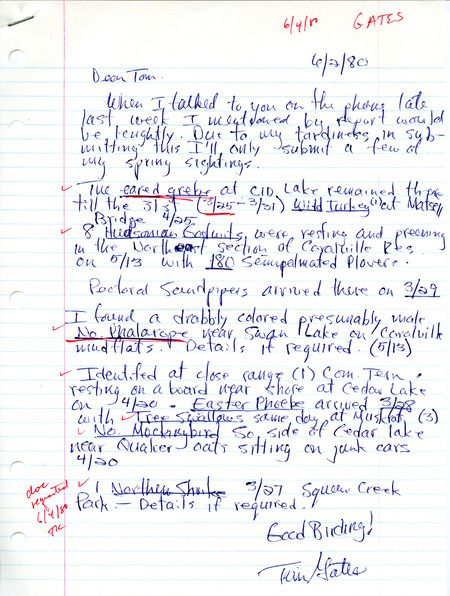 6/4/80 GATES
6/2/80
Dear Tom.
When I talked to you on the phone late
last week I mentioned by report would
be lenghtly. Due to my tardiness in sub-
mitting this I'll only submit a few of
my spring sightings.
The eared grebe at C.I.D. Lake remained there
till the 31st (3/25-3/31) Wild Turkey (1) at Matsell
Bridge 4/25.
8 Hudsonian Godwits were resting and preening
in the Northeast section of Coralville Res.
on 5/13 with 180 Semipalmated Plovers.
Pectoral Sandpipers arrived there on 3/29
I found a drabbly colored presumably male
No. Phalarope near Swan Lake on Coralville
mudflats. Details if required. (5/13)
Identifed at close range (1) Com. Tern
resting on a board near shore at Cedar Lake
on 4/20. Easter Phoebe arrived 3/28
with Tree Swallows same day at Muskrat (3)
No. Mockingbird So. side of Cedar lake
near Quaker oats sitting on junk cars
4/20
1 Northern Shrike 3/27 Squaw Creek
Park - Details if required.
doc
requested
6/4/80
TK
Good Birding!
Tim Gates